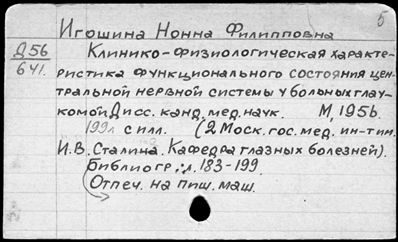 5
Игошина Нонна Филипповна
Д56
641.
Клинико-физиологическая характе-
ристика функционального состояния цен-
тральной нервной системы у больных глау-
комой. Дисс. канд. мед. наук. М, 1956.
199л с илл. (2 Моск. гос. мед. ин-т им.
И.В. Сталина. Кафедра глазных болезней).
Библиогр: л. 183-199.
Отпеч. на пиш. маш.